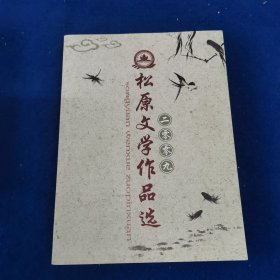 松原文学作品选
songyuan wenxue zuopinxuan
二零零九